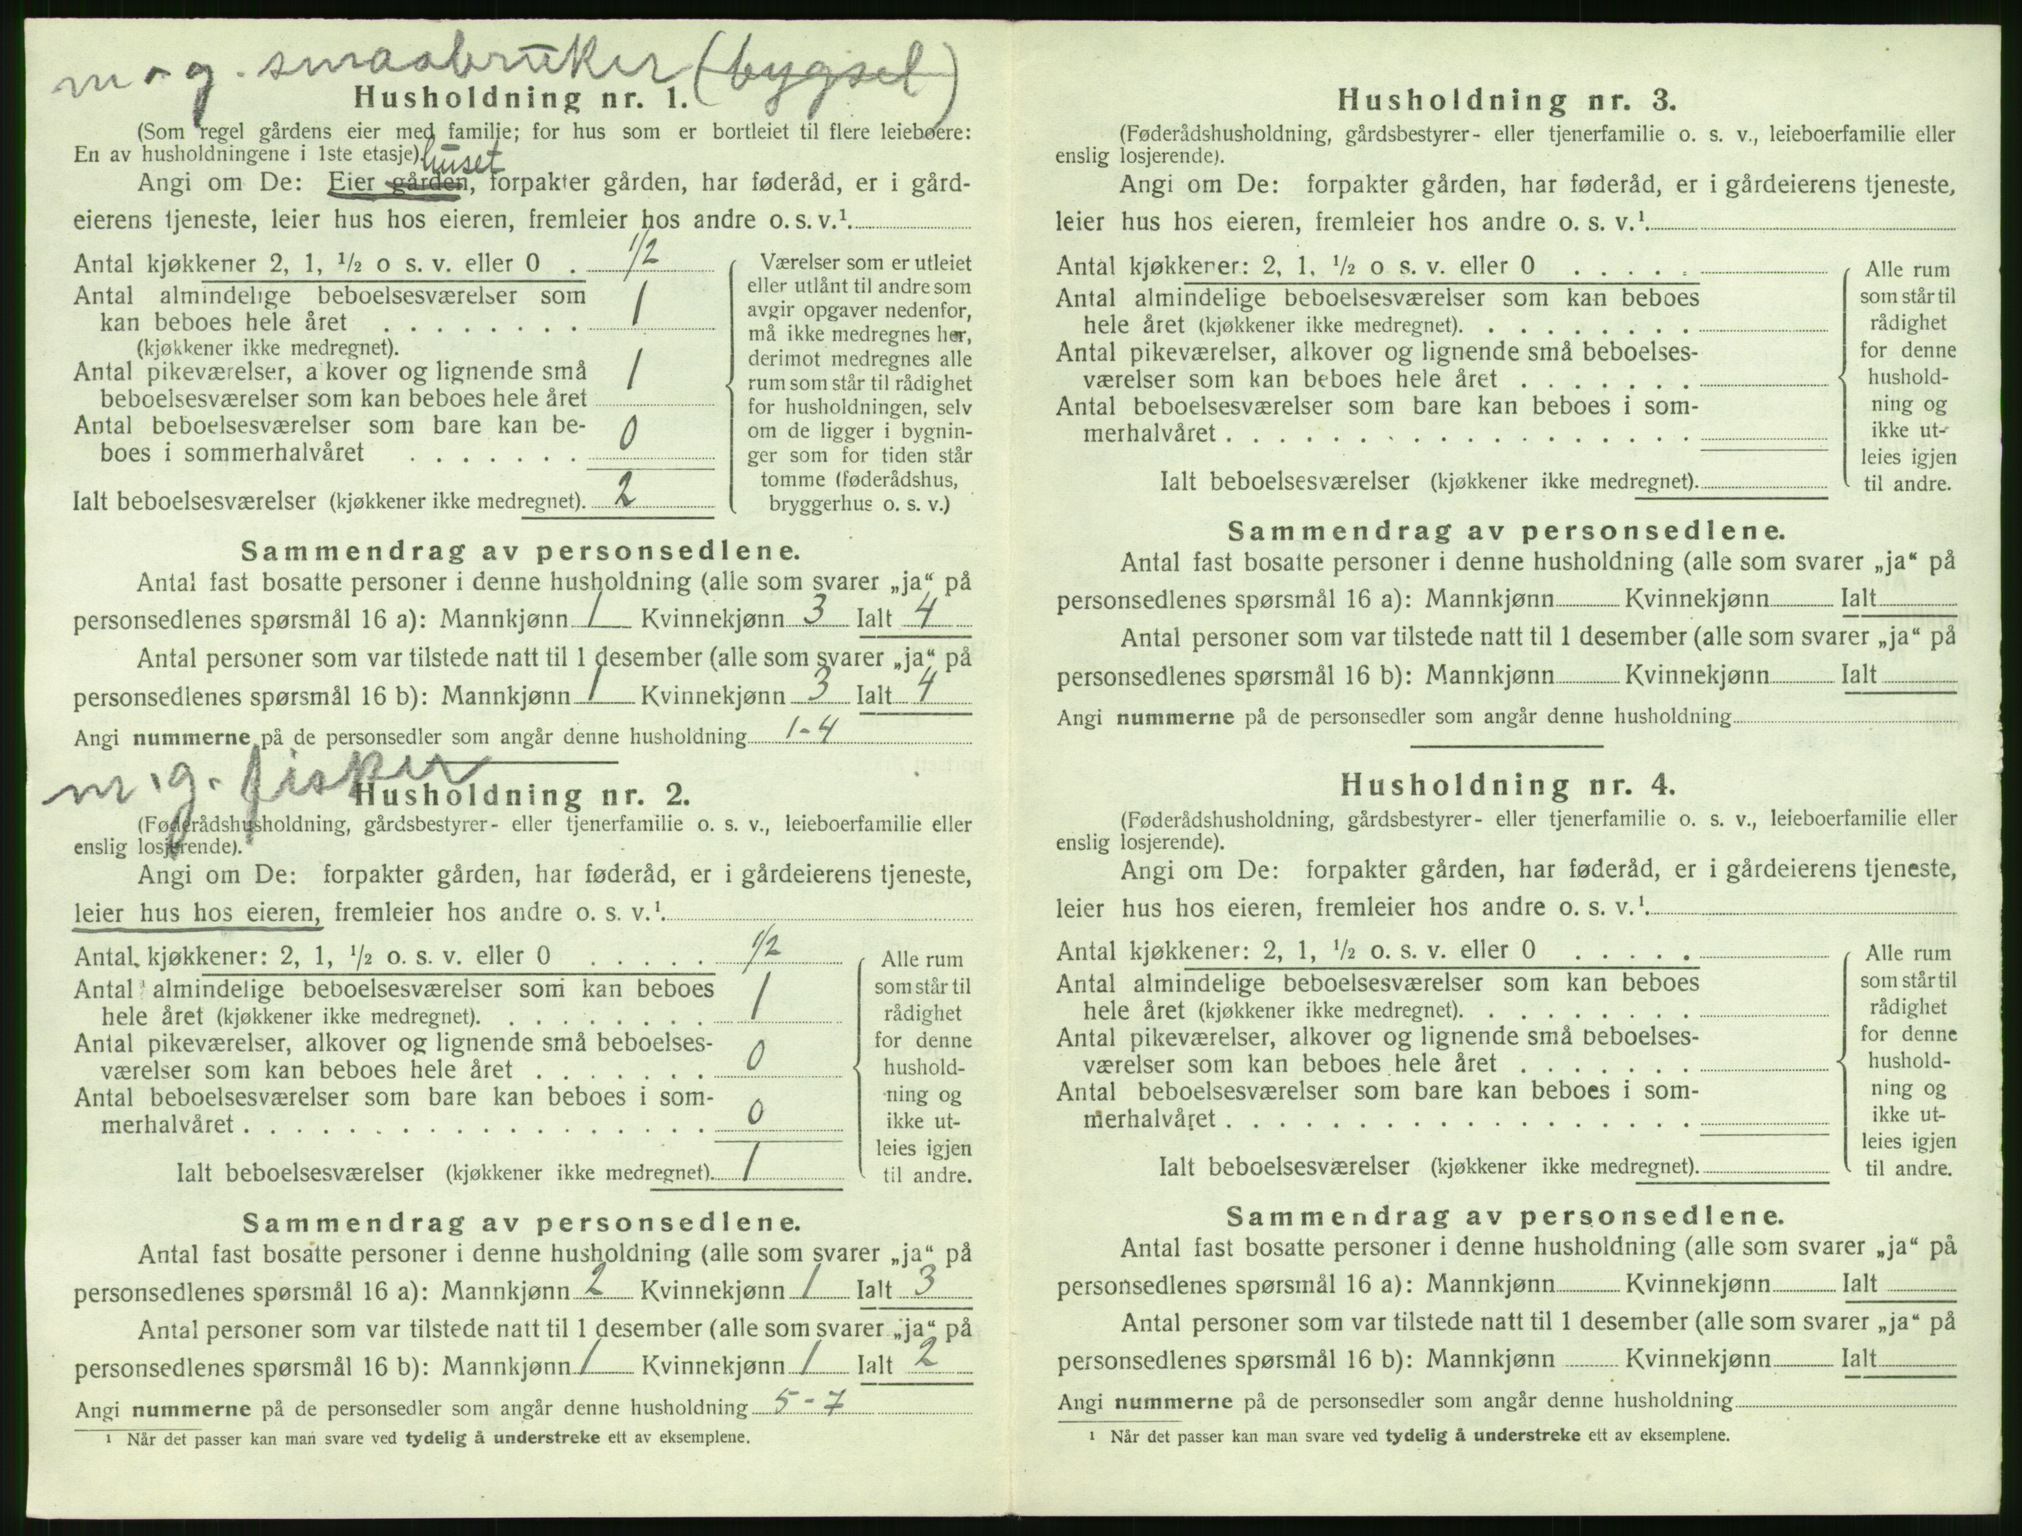 m. g. smaabruker (bygsel)
Husholdning nr. 1.
(Som regel gårdens eier med familie; for hus som er bortleiet til flere leieboere:
En av husholdningene i 1ste etasje).
huset
Angi om De: Eier gården, forpakter gården, har føderåd, er i gård-
eierens tjeneste, leier hus hos eieren, fremleier hos andre o. s. v.¹
Antal kjøkkener 2, 1, ½ o s. v. eller 0 . 1/2
Antal almindelige beboelsesværelser som
kan beboes hele året . . . . . . . . 1
(kjøkkener ikke medregnet).
Antal pikeværelser, a kover og lignende små
beboelsesværelser som kan beboes hele året 1
Antal beboelsesværelser som bare kan be-
boes i sommerhalvåret . . . . . . . 0
Ialt beboelsesværelser (kjøkkener ikke medregnet). 2
Værelser som er utleiet
eller utlånt til andre som
avgir opgaver nedenfor,
må ikke medregnes her,
derimot medregnes alle
rum som står til rådighet
for husholdningen, selv
om de ligger i bygnin-
ger som for tiden står
tomme (føderådshus,
bryggerhus o. s. v.)
Sammendrag av personsedlene.
Antal fast bosatte personer i denne husholdning (alle som svarer „ja“ på
personsedlenes spørsmål 16 a): Mannkjønn 1 Kvinnekjønn 3 Ialt 4
Antal personer som var tilstede natt til 1 desember (alle som svarer „ja“ på
personsedlenes spørsmål 16 b): Mannkjønn 1 Kvinnekjønn 3 Ialt 4
Angi nummerne på de personsedler som angår denne husholdning 1-4
m. g. fisker
Husholdning nr. 2.
(Føderådshusholdning, gårdsbestyrer- eller tjenerfamilie o. s. v., leieboerfamilie eller
enslig losjerende).
Angi om De: forpakter gården, har føderåd, er i gårdeierens tjeneste,
leier hus hos eieren, fremleier hos andre o. s. v.¹
Antal kjøkkener: 2, 1, ½ o. s. v. eller 0 . . . . . 1/2
Antal almindelige beboelsesværelser som kan beboes
hele året (kjøkkener ikke medregnet). . . . . . . . 1
Antal pikeværelser, alkover og lignende små beboelses-
værelser som kan beboes hele året . . . . . . . 0
Antal beboelsesværelser som bare kan beboes i som-
merhalvåret . . . . . . . . . . . . . . . . . . 0
Ialt beboelsesværelser (kjøkkener ikke medregnet). 1
Alle rum
som står til
rådighet
for denne
hushold-
ning og
ikke ut-
leies igjen
til andre.
Sammendrag av personsedlene.
Antal fast bosatte personer i denne husholdning (alle som svarer „ja“ på
personsedlenes spørsmål 16 a): Mannkjønn 2 Kvinnekjønn 1 Ialt 3
Antal personer som var tilstede natt til 1 desember (alle som svarer „ja“ på
personsedlenes spørsmål 16 b): Mannkjønn 1 Kvinnekjønn 1 Ialt 2
Angi nummerne på de personsedler som angår denne husholdning 5-7
¹ Når det passer kan man svare ved tydelig å understreke ett av eksemplene.
Husholdning nr. 3.
(Føderådshusholdning, gårdsbestyrer- eller tjenerfamilie o. s. v., leieboerfamilie eller
enslig losjerende).
Angi om De: forpakter gården, har føderåd, er i gårdeierens tjeneste,
leier hus hos eieren, fremleier hos andre o. s. v.¹
Antal kjøkkener: 2, 1, ½ o s. v. eller 0 . . . . .
Antal almindelige beboelsesværelser som kan beboes
hele året (kjøkkener ikke medregnet). . . . . . . .
Antal pikeværelser, alkover og lignende små beboelses-
værelser som kan beboes hele året . . . . . . .
Antal beboelsesværelser som bare kan beboes i som-
merhalvåret . . . . . . . . . . . . . . . . . .
Ialt beboelsesværelser (kjøkkener ikke medregnet).
Alle rum
som står til
rådighet
for denne
hushold-
ning og
ikke ut-
leies igjen
til andre.
Sammendrag av personsedlene.
Antal fast bosatte personer i denne husholdning (alle som svarer „ja“ på
personsedlenes spørsmål 16 a): Mannkjønn Kvinnekjønn Ialt
Antal personer som var tilstede natt til 1 desember (alle som svarer „ja“ på
personsedlenes spørsmål 16 b): Mannkjønn Kvinnekjønn Ialt
Angi nummerne på de personsedler som angår denne husholdning
Husholdning nr. 4.
(Føderådshusholdning, gårdsbestyrer- eller tjenerfamilie o. s. v., leieboerfamilie eller
enslig losjerende).
Angi om De: forpakter gården, har føderåd, er i gårdeierens tjeneste,
leier hus hos eieren, fremleier hos andre o. s. v.¹
Antal kjøkkener: 2, 1, ½ o. s. v. eller 0 . . . . .
Antal almindelige beboelsesværelser som kan beboes
hele året (kjøkkener ikke medregnet). . . . . . . .
Antal pikeværelser, alkover og lignende små beboelses-
værelser som kan beboes hele året . . . . . . .
Antal beboelsesværelser som bare kan beboes i som-
merhalvåret . . . . . . . . . . . . . . . . . .
Ialt beboelsesværelser (kjøkkener ikke medregnet).
Alle rum
som står til
rådighet
for denne
hushold-
ning og
ikke ut-
leies igjen
til andre.
Sammendrag av personsedlene.
Antal fast bosatte personer i denne husholdning (alle som svarer „ja“ på
personsedlenes spørsmål 16 a): Mannkjønn Kvinnekjønn Ialt
Antal personer som var tilstede natt til 1 desember (alle som svarer „ja“ på
personsedlenes spørsmål 16 b): Mannkjønn Kvinnekjønn Ialt
Angi nummerne på de personsedler som angår denne husholdning
¹ Når det passer kan man svare ved tydelig å understreke ett av eksemplene.